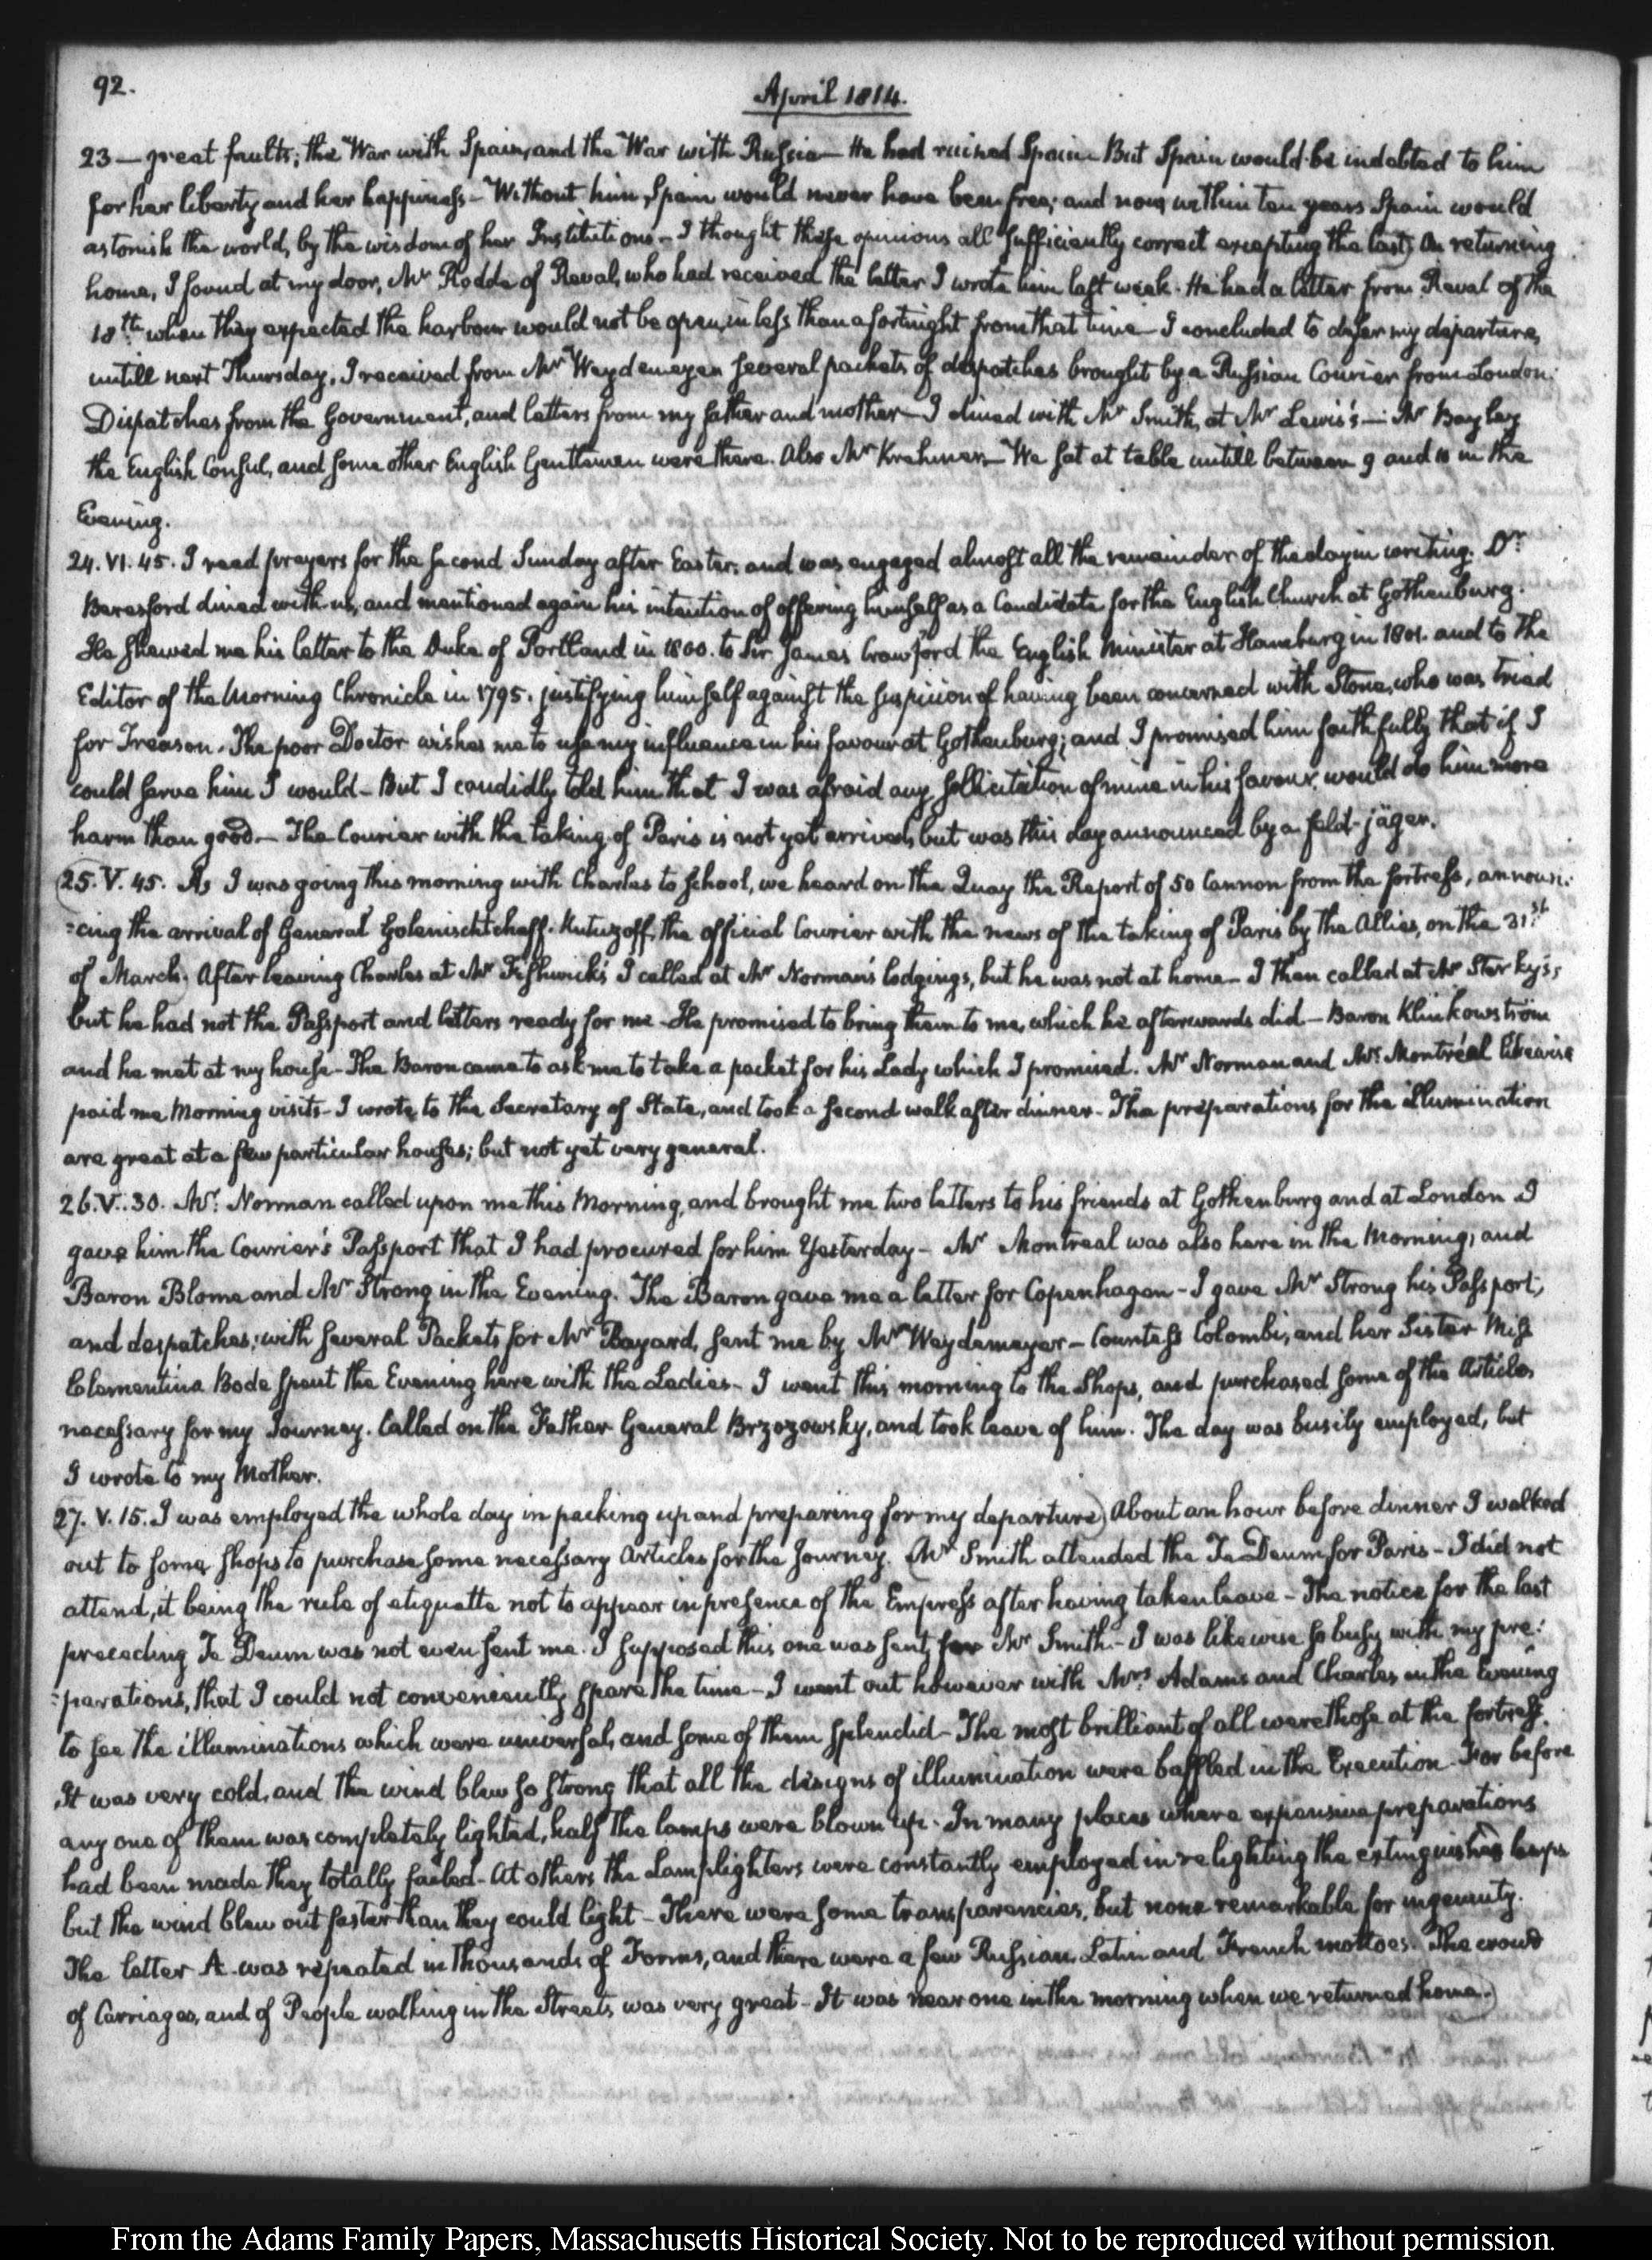 92.
April 1814.
23 — great faults; the War with Spain, and the War with Russia — He had ruined Spain — But Spain would be indebted to him
for her liberty and her happiness — Without him, Spain would never have been free; and now within ten years Spain would
astonish the world, by the wisdom of her Institutions — I thought these opinions all sufficiently correct excepting the last) On returning
home, I found at my door, Mr Rodde of Reval, who had received the letter I wrote him last week. He had a letter from Reval of the
18th when they expected the harbour would not be open, in less than a fortnight from that time — I concluded to defer my departure,
untill next Thursday, I received from Mr Weydemeyer several packets of despatches brought by a Russian Courier from London:
Dispatches from the Government, and letters from my father and mother — I dined with Mr Smith, at Mr Lewis's — Mr Bayley
the English Consul, and some other English Gentlemen were there. Also Mr Krehmer — We sat at table untill between 9 and 10 in the
Evening.
24. VI. 45. I read prayers for the second Sunday after Easter, and was engaged almost all the remainder of the day in writing. Dr
Beresford dined with us, and mentioned again his intention of offering himself as a Candidate for the English Church at Gothenburg.
He shewed me his letter to the Duke of Portland in 1800. to Sir James Crawford the English Minister at Hamburg in 1801. and to the
Editor of the Morning Chronicle in 1795. justifying himself against the suspicion of having been concerned with Stone, who was tried
for Treason. The poor Doctor wishes me to use my influence in his favour at Gothenburg; and I promised him faithfully that if I
could serve him I would — But I candidly told him that I was afraid any sollicitation of mine in his favour, would do him more
harm than good — The Courier with the taking of Paris is not yet arrived, but was this day announced by a feld-jäger.
(25. V. 45. As I was going this morning with Charles to school, we heard on the Quay the Report of 50 Cannon from the fortress, announ:
:cing the arrival of General Golenischtcheff-Kutuzoff, the official Courier with the news of the taking of Paris by the Allies, on the 31st
of March) After leaving Charles at Mr Fishwick's I called at Mr Norman's lodgings, but he was not at home — I then called at Mr Sterky's,
but he had not the Passport and letters ready for me — He promised to bring them to me, which he afterwards did — Baron Klinkowström
and he met at my house — The Baron came to ask me to take a packet for his Lady which I promised. Mr Norman and Mr Montréal likewise
paid me Morning visits — I wrote to the Secretary of State, and took a second walk after dinner — The preparations for the illumination
are great at a few particular houses; but not yet very general.
26. V. 30. Mr Norman called upon me this Morning, and brought me two letters to his friends at Gothenburg and at London I
gave him the Courier's Passport that I had procured for him Yesterday — Mr Montreal was also here in the Morning, and
Baron Blome and Mr Strong in the Evening. The Baron gave me a letter for Copenhagen — I gave Mr Strong his Passport,
and despatches; with several Packets for Mr Bayard, sent me by Mr Weydemeyer — Countess Colombi, and her Sister Miss
Clementina Bode spent the Evening here with the Ladies — I went this morning to the Shops, and purchased some of the Articles
necessary for my Journey. Called on the Father General Brzozowsky, and took leave of him. The day was busily employed, but
I wrote to my Mother.
27. V. 15. I was employed the whole day in packing up and preparing for my departure) About an hour before dinner I walked
out to some shops to purchase some necessary Articles for the Journey. (Mr Smith attended the Te Deum for Paris — I did not
attend, it being the rule of etiquette not to appear in presence of the Empress after having taken leave — The notice for the last
preceding Te Deum was not even sent me. I supposed this one was sent for Mr Smith — I was likewise so busy with my pre:
:parations, that I could not conveniently spare the time — I went out however with Mrs Adams and Charles in the Evening
to see the illuminations which were universal, and some of them splendid — The most brilliant of all were those at the fortress.
It was very cold, and the wind blew so strong that all the designs of illumination were baffled in the Execution — For before
any one of them was completely lighted, half the lamps were blown up. In many places where expensive preparations
had been made they totally failed — At others the Lamplighters were constantly employed in relighting the extinguished lamps
but the wind blew out faster than they could light — There were some transparencies, but none remarkable for ingenuity.
The letter A. was repeated in thousands of Forms, and there were a few Russian, Latin and French mottoes. The crowd
of Carriages, and of People walking in the Streets was very great — It was near one in the morning when we returned home.)
From the Adams Family Papers, Massachusetts Historical Society. Not to be reproduced without permission.